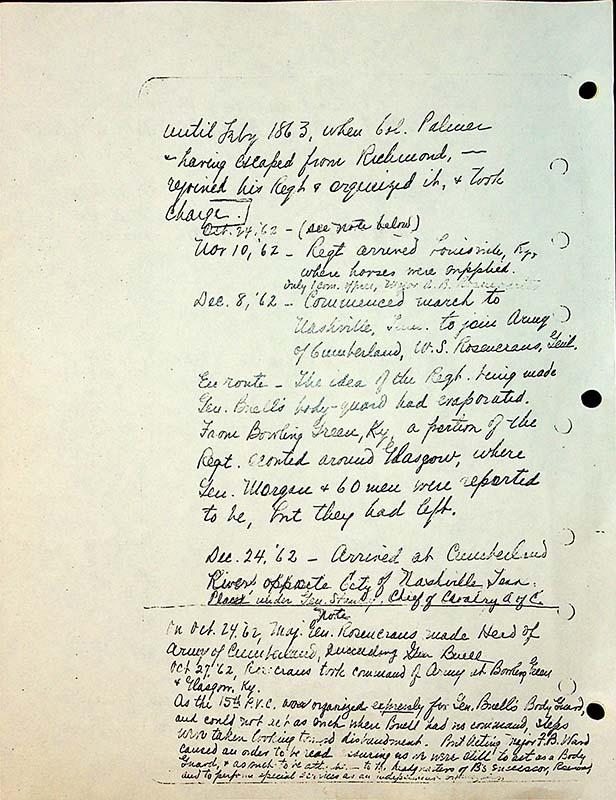 until Feby 1863, when Col. Palmer
- having escaped from Richmond, -
rejoined his Regt & orgenized it, & took
charge.]
Oct. 24,'62 - (see note below)
Nov 10,'62 - Regt arrived Louisville, Ky,
where horses were supplied.
Only 1 com. officer, Major
Dec. 8,'62 - Commenced march to
Nashville, Tenn. to join Army
of Cumberland, W.S. Rosencrans, Genl.
En route - The idea of the Regt. being made
Gen. Buell's body-guard had evaporated.
From Bowling Green, Ky, a portion of the
Regt. scouted around Glasgow, where
Gen. Morgan & 60 men were reported
to be, but they had left.
Dec. 24,'62 - Arrived at Cumberland
River opposite City of Nashville, Tenn.
Placed under Gen. Stanley, Chief of Cavalry A of C.
Note
On Oct. 24,'62, Maj. Gen. Rosencrans made Head of
Army of Cumberland, succeeding Gen Buell
Oct 27,'62, Rosecrans took command of Army at Bowling Green
& Glasgow, Ky.
As the 15th P.V.C. was organized expressly for Gen. Buell's Body Guard,
and could not act as such when Buell had no command, steps
were taken looking toward disbandment. But Acting Major F.B. Ward
caused an order to be read assuring us we were still to act as a Body
Guard, & as such to be to the Headquarters of B's successor,
and to perform special services as an independent